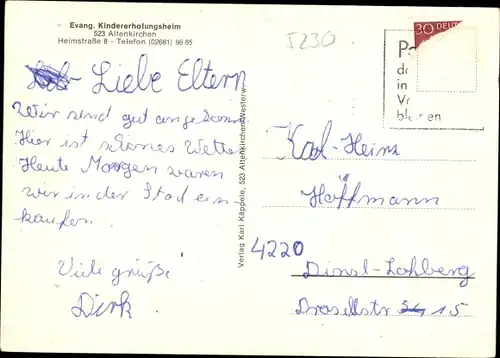 Evang. Kindererholungsheim
523 Altenkirchen
Heimstraße 8 - Telefon (02681) 96 85
5230
30 DEUT
Liebe Eltern
Wir sind gut ange
Hier ist Wetter
Heute Morgen waren
wir in der Stad ein-
kaufen.
Viele grüße
Dirk
Verlag Karl Käppele, 523 Altenkirchen/Westerw.
Karl-Heinz
Hoffmann
4220
Dinsl-Lohberg
15